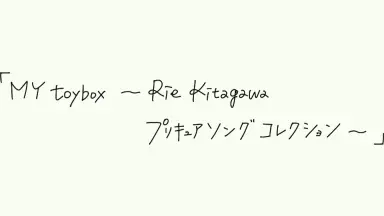 「MY toybox ～ Rie Kitagawa
プリキュアソングコレクション～」